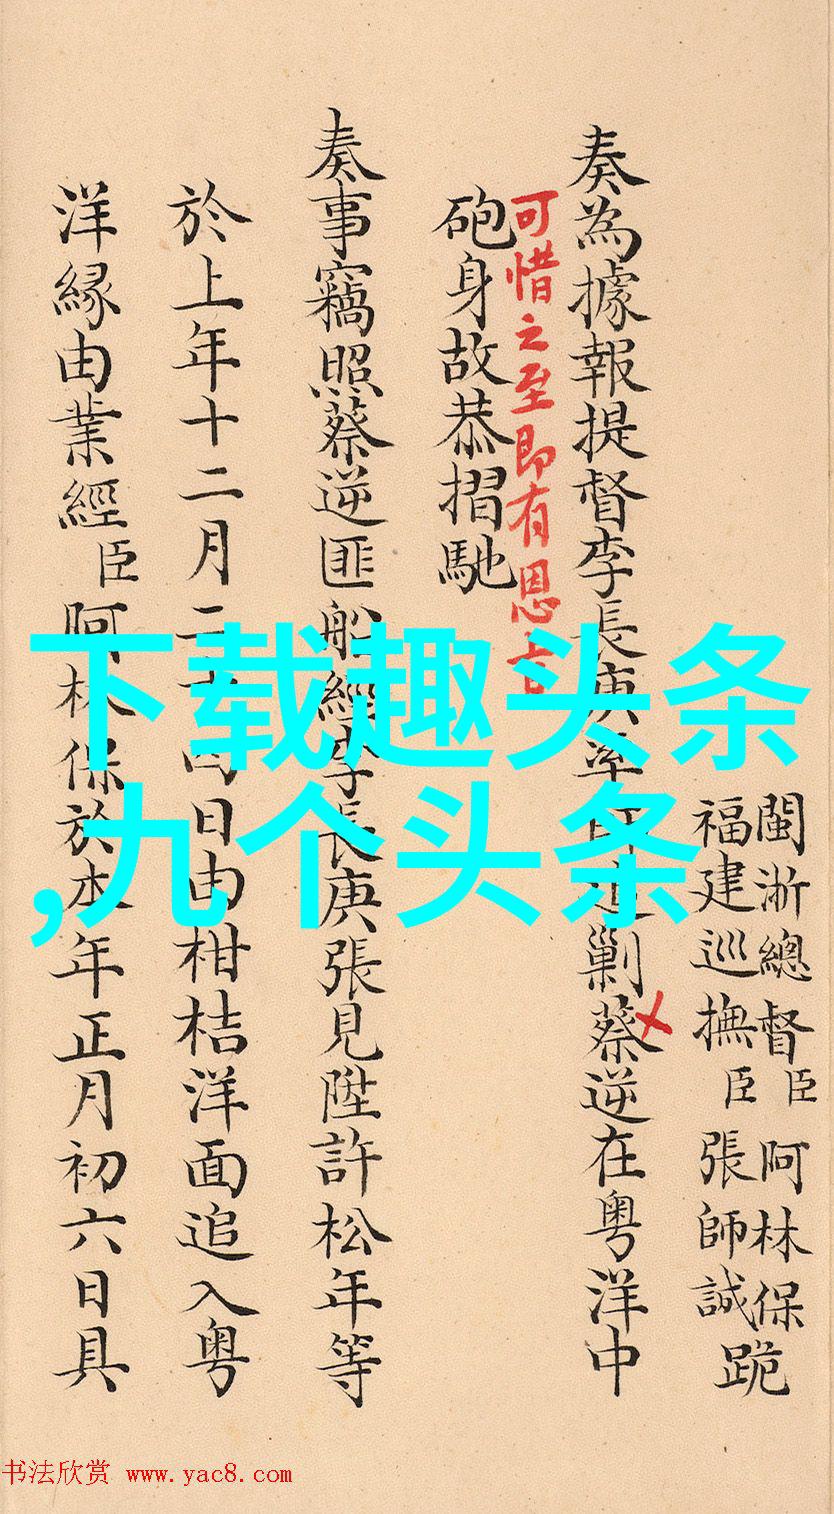 閩浙總督臣阿林保
福建巡撫臣張師誠跪
奏為據報提督李長庚率師追剿蔡逆在粵洋中
可惜之至即有恩旨
砲身故恭摺馳
奏事竊照蔡逆匪船經李長庚張見陞許松年等
於上年十二月二十四日由柑桔洋面追入粵
洋緣由業經臣阿林保於本年正月初六日具
下载趣头条
,九个头条
书法欣赏 www.yac8.com